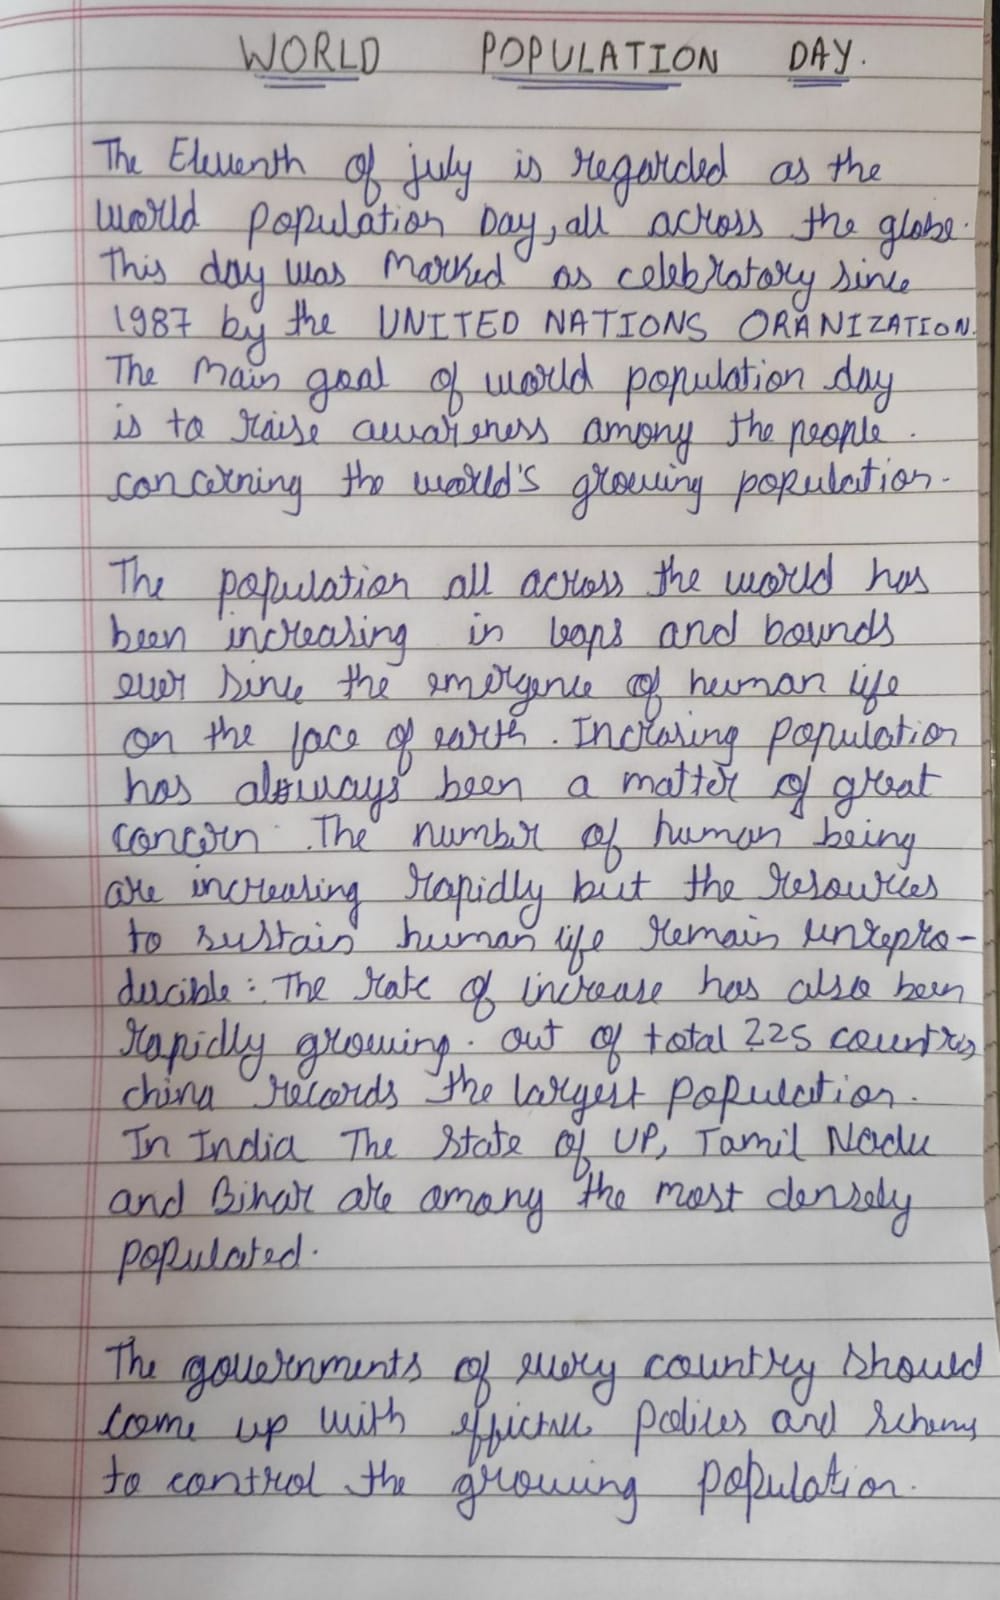 WORLD POPULATION DAY.
The Eleventh of july is regarded as the
world population Day, all across the globe.
This day was Marked as celebratory since
1987 by the UNITED NATIONS ORANIZATION.
The Main goal of world population day
is to raise awareness among the people.
concerning the world's growing population.
The population all across the world has
been increasing in leaps and bounds
ever since the emergence of human life
on the face of earth. Incrasing population
has always been a matter of great
concern. The number of human being
are increasing rapidly but the resources
to sustain human life remain unrepro-
ducible: The rate of increase has also been
rapidly growing. out of total 225 countries
china records the largest population.
In India The State of UP, Tamil Nadu
and Bihar are among the most densely
populated.
The governments of every country should
come up with effictive polices and schems
to control the growing population.